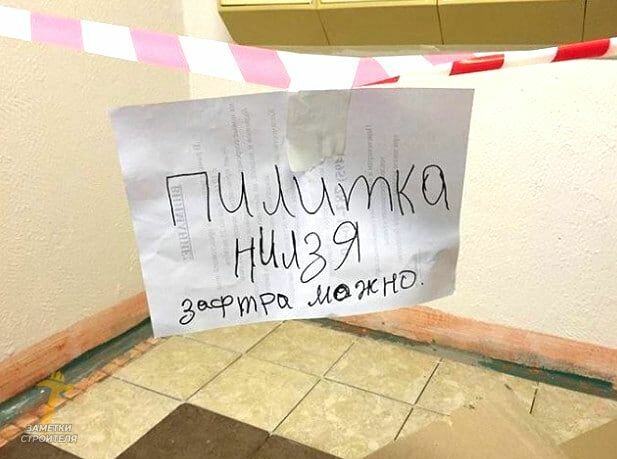 ПИЛИТКА
НИЛЗЯ
зафтра можно.
ВНИМАНИЕ
ЗАМЕТКИ
СТРОИТЕЛЯ